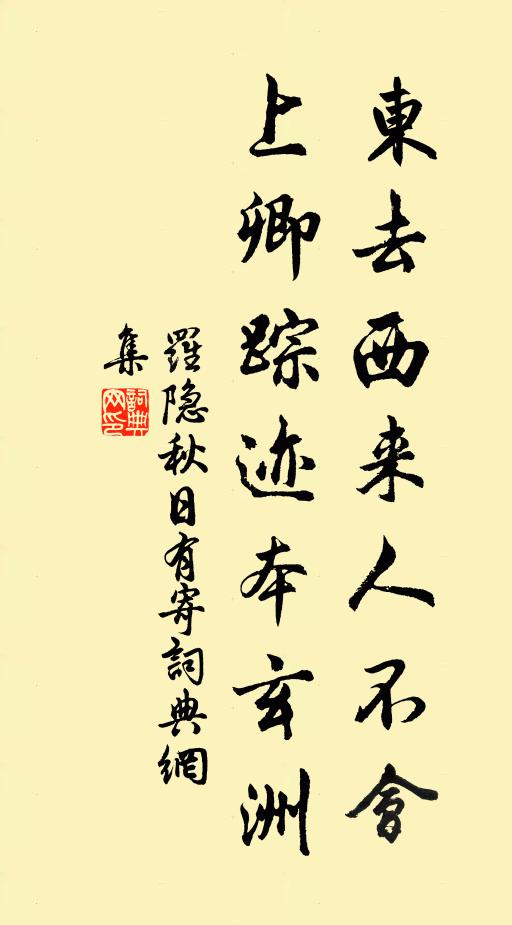 東去西来人不會
上卿踪迹本玄洲
羅隐秋日有寄詞典網
集
詞典
网印